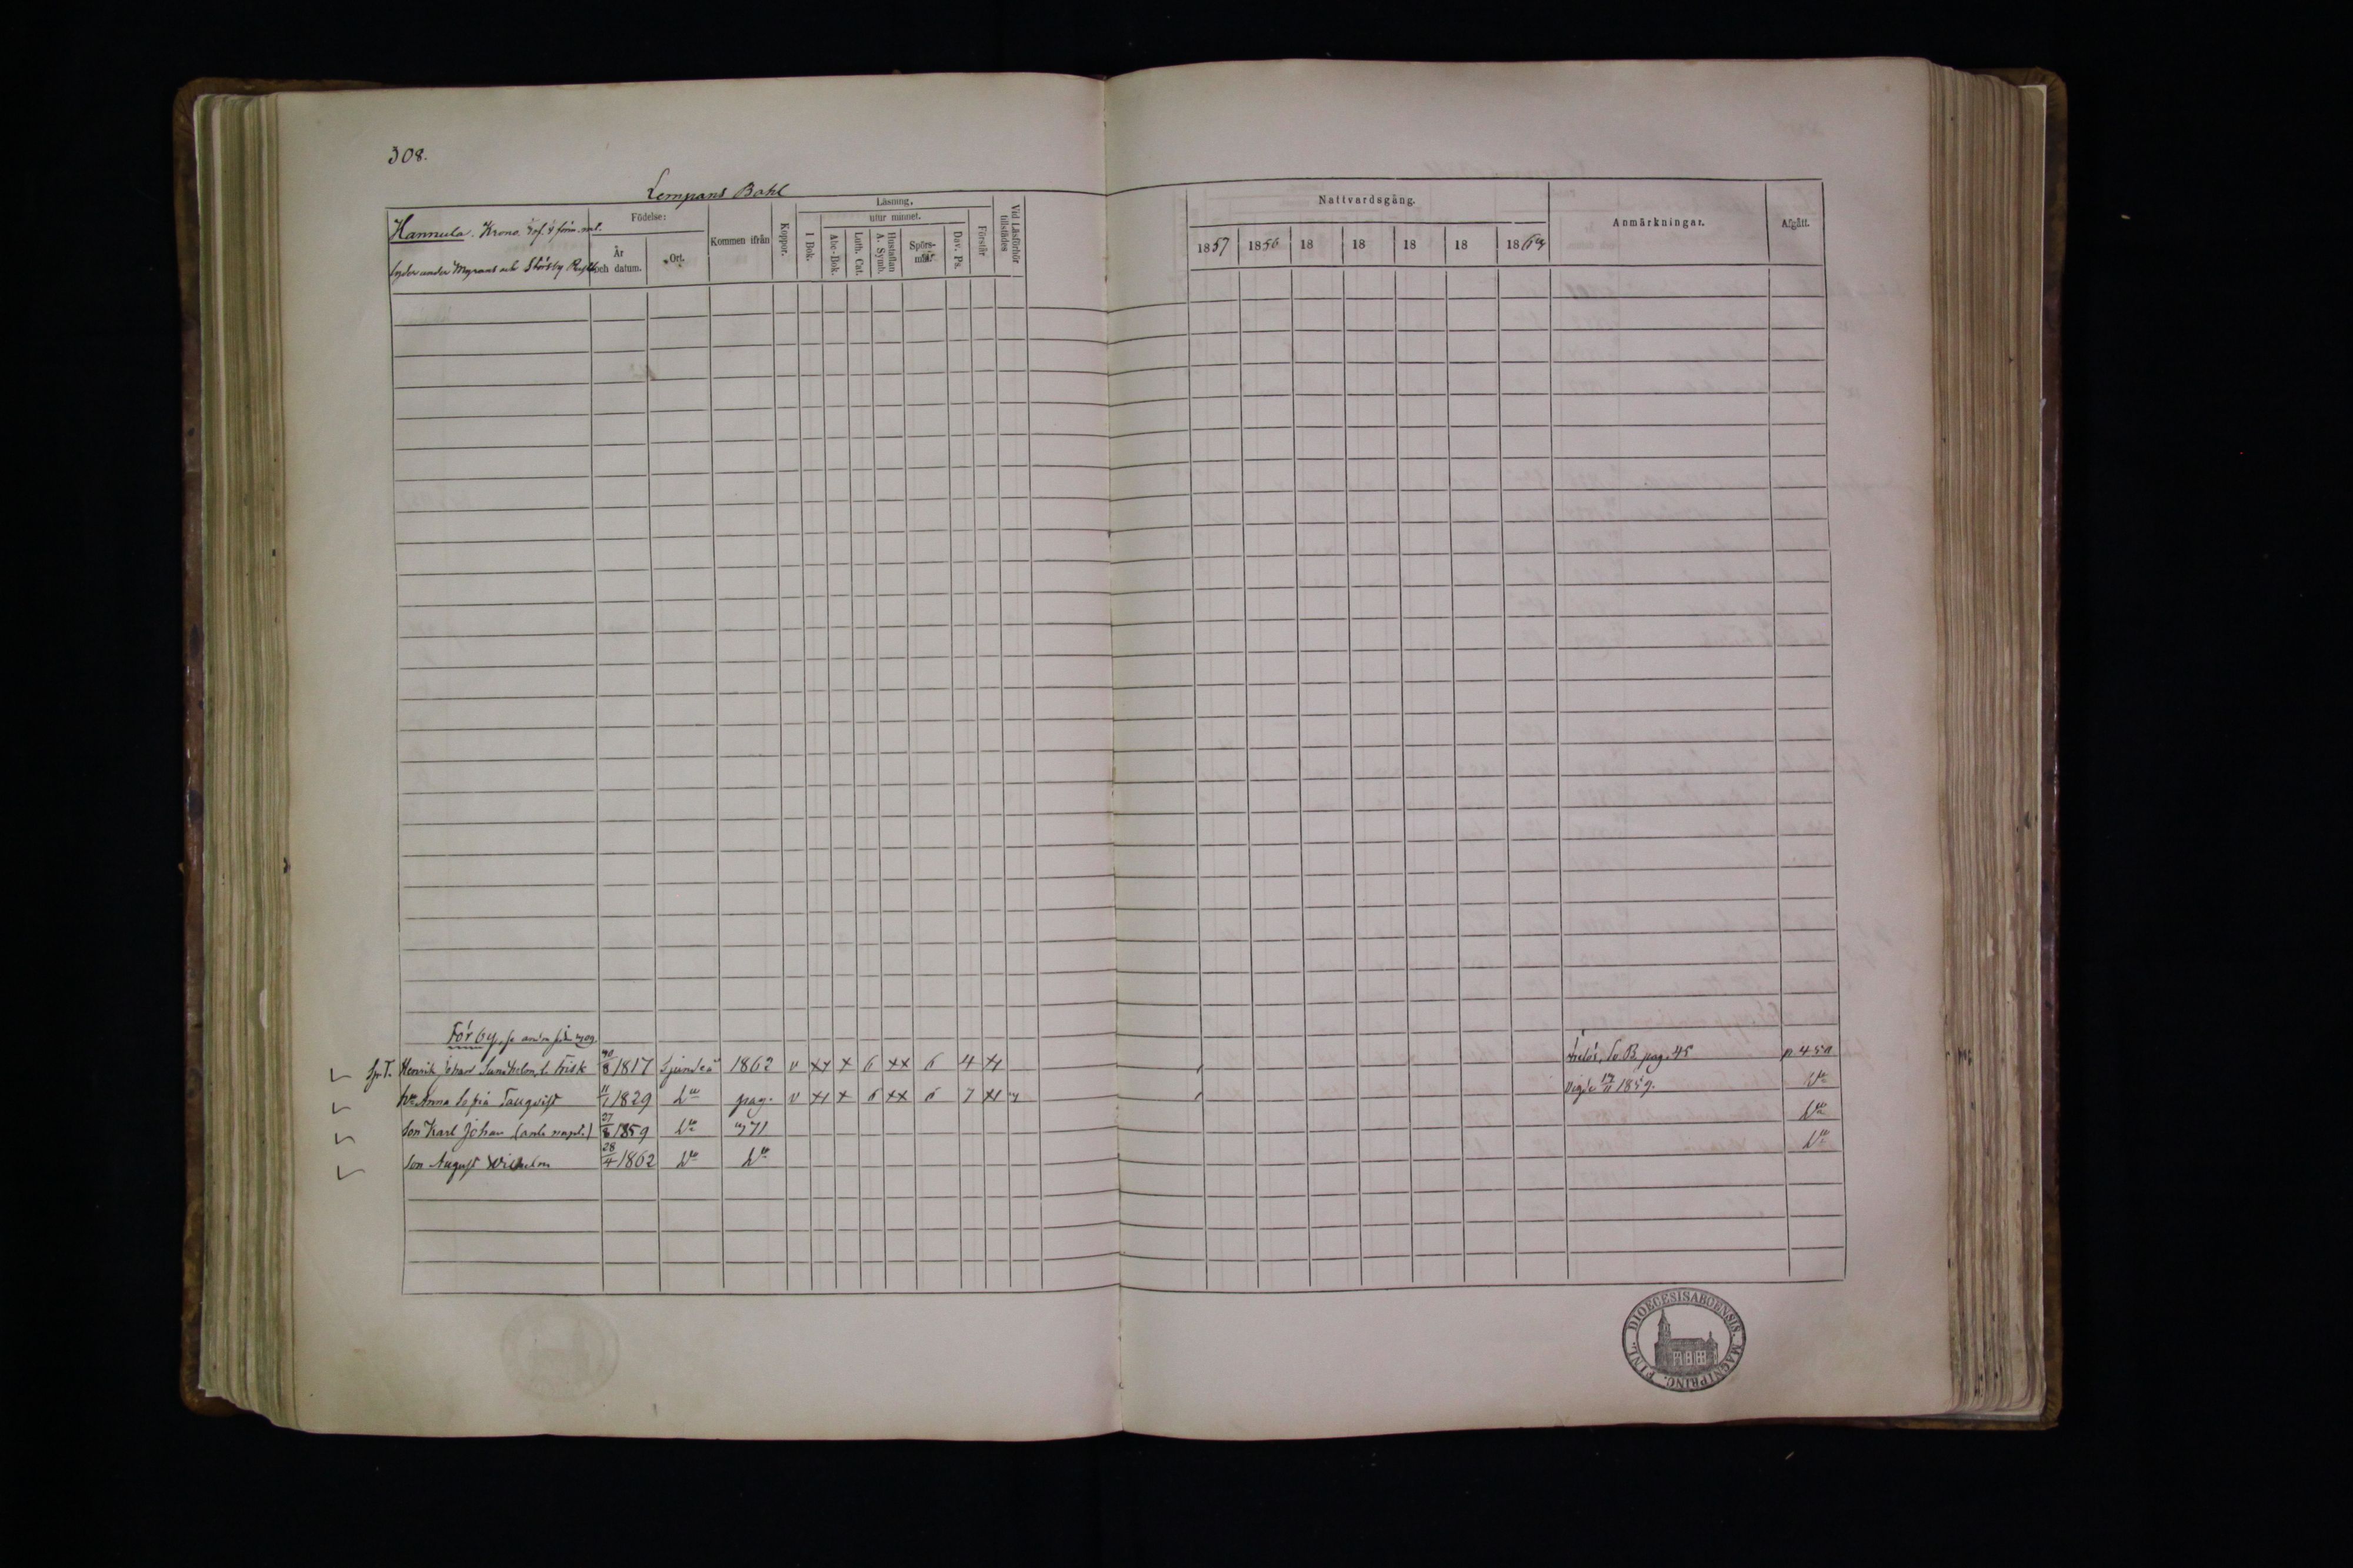 308.
Lempans Bohl
Hannula. Krono
lyder under Myrans och Störsby
Födelse:
År och datum.
Ort.
Kommen ifrån
Koppor.
Läsning,
I Bok.
utur minnet.
Abc-Bok.
Luth. Cat.
Hustaflan A. Symb.
Spörs-mål.
Dav. Ps.
Förstår
Vid Läsförhör tillstädes
Nattvardsgång.
1857 1856 18 18 18 18 18
Anmärkningar.
Afgått.
Förby, se
Henrik Johan Sundholm, 1817 Sjundeå 1862 v 6 xx 6 4 pag. 45 p 450
Anna Sofia Tallqvist 11/1 1829 Do pag. v 6 xx 6 7 1859. Do
Son Karl Johan 27/8 1859 Do 71 Do
Son August Wilhelm 28/4 1862 Do Do Do
DIOECESIS ABOENSIS. MAGNI PRINC. FINL.